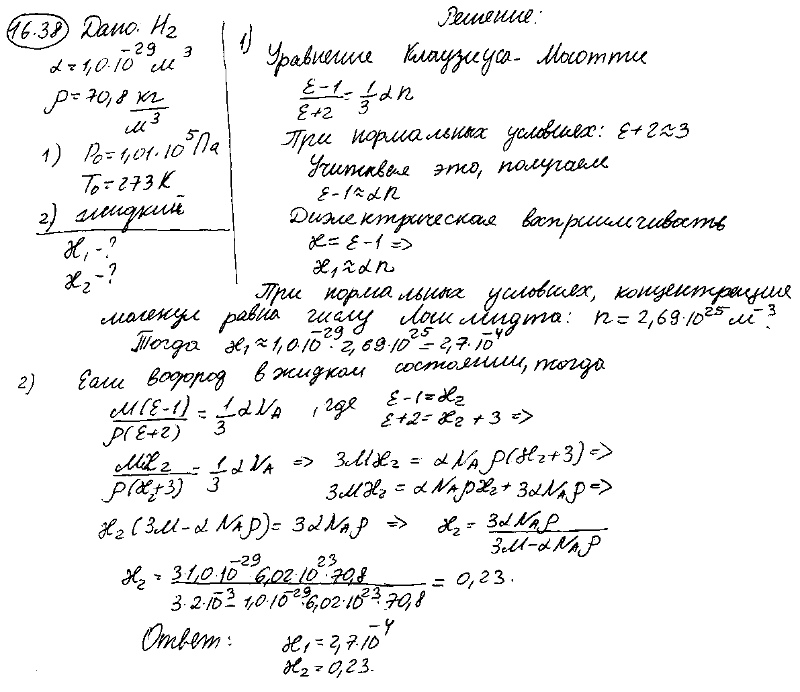 16.38 Дано: H₂
α=1,0·10⁻²⁹ м³
ρ=70,8 кг/м³
1) P₀=1,01·10⁵ Па
T₀=273К
2) жидкий
ϰ₁-?
ϰ₂-?
Решение:
1) Уравнение Клаузиуса-Мосотти
(ε-1)/(ε+2) = 1/3 αn
При нормальных условиях: ε+2≈3
Учитывая это, получаем
ε-1≈αn
Диэлектрическая восприимчивость
ϰ=ε-1 =>
ϰ₁≈αn
При нормальных условиях, концентрация
молекул равна числу Лошмидта: n=2,69·10²⁵ м⁻³.
Тогда ϰ₁≈1,0·10⁻²⁹·2,69·10²⁵=2,7·10⁻⁴
2) Если водород в жидком состоянии, тогда
M(ε-1)/ρ(ε+2) = 1/3 αN_A , где ε-1=ϰ₂
ε+2=ϰ₂+3 =>
Mϰ₂/ρ(ϰ₂+3) = 1/3 αN_A => 3Mϰ₂ = αN_Aρ(ϰ₂+3) =>
3Mϰ₂ = αN_Aρϰ₂ + 3αN_Aρ =>
ϰ₂(3M-αN_Aρ) = 3αN_Aρ => ϰ₂ = 3αN_Aρ/(3M-αN_Aρ)
ϰ₂ = (3·1,0·10⁻²⁹·6,02·10²³·70,8)/(3·2·10⁻³-1,0·10⁻²⁹·6,02·10²³·70,8) = 0,23.
Ответ: ϰ₁=2,7·10⁻⁴
ϰ₂=0,23.